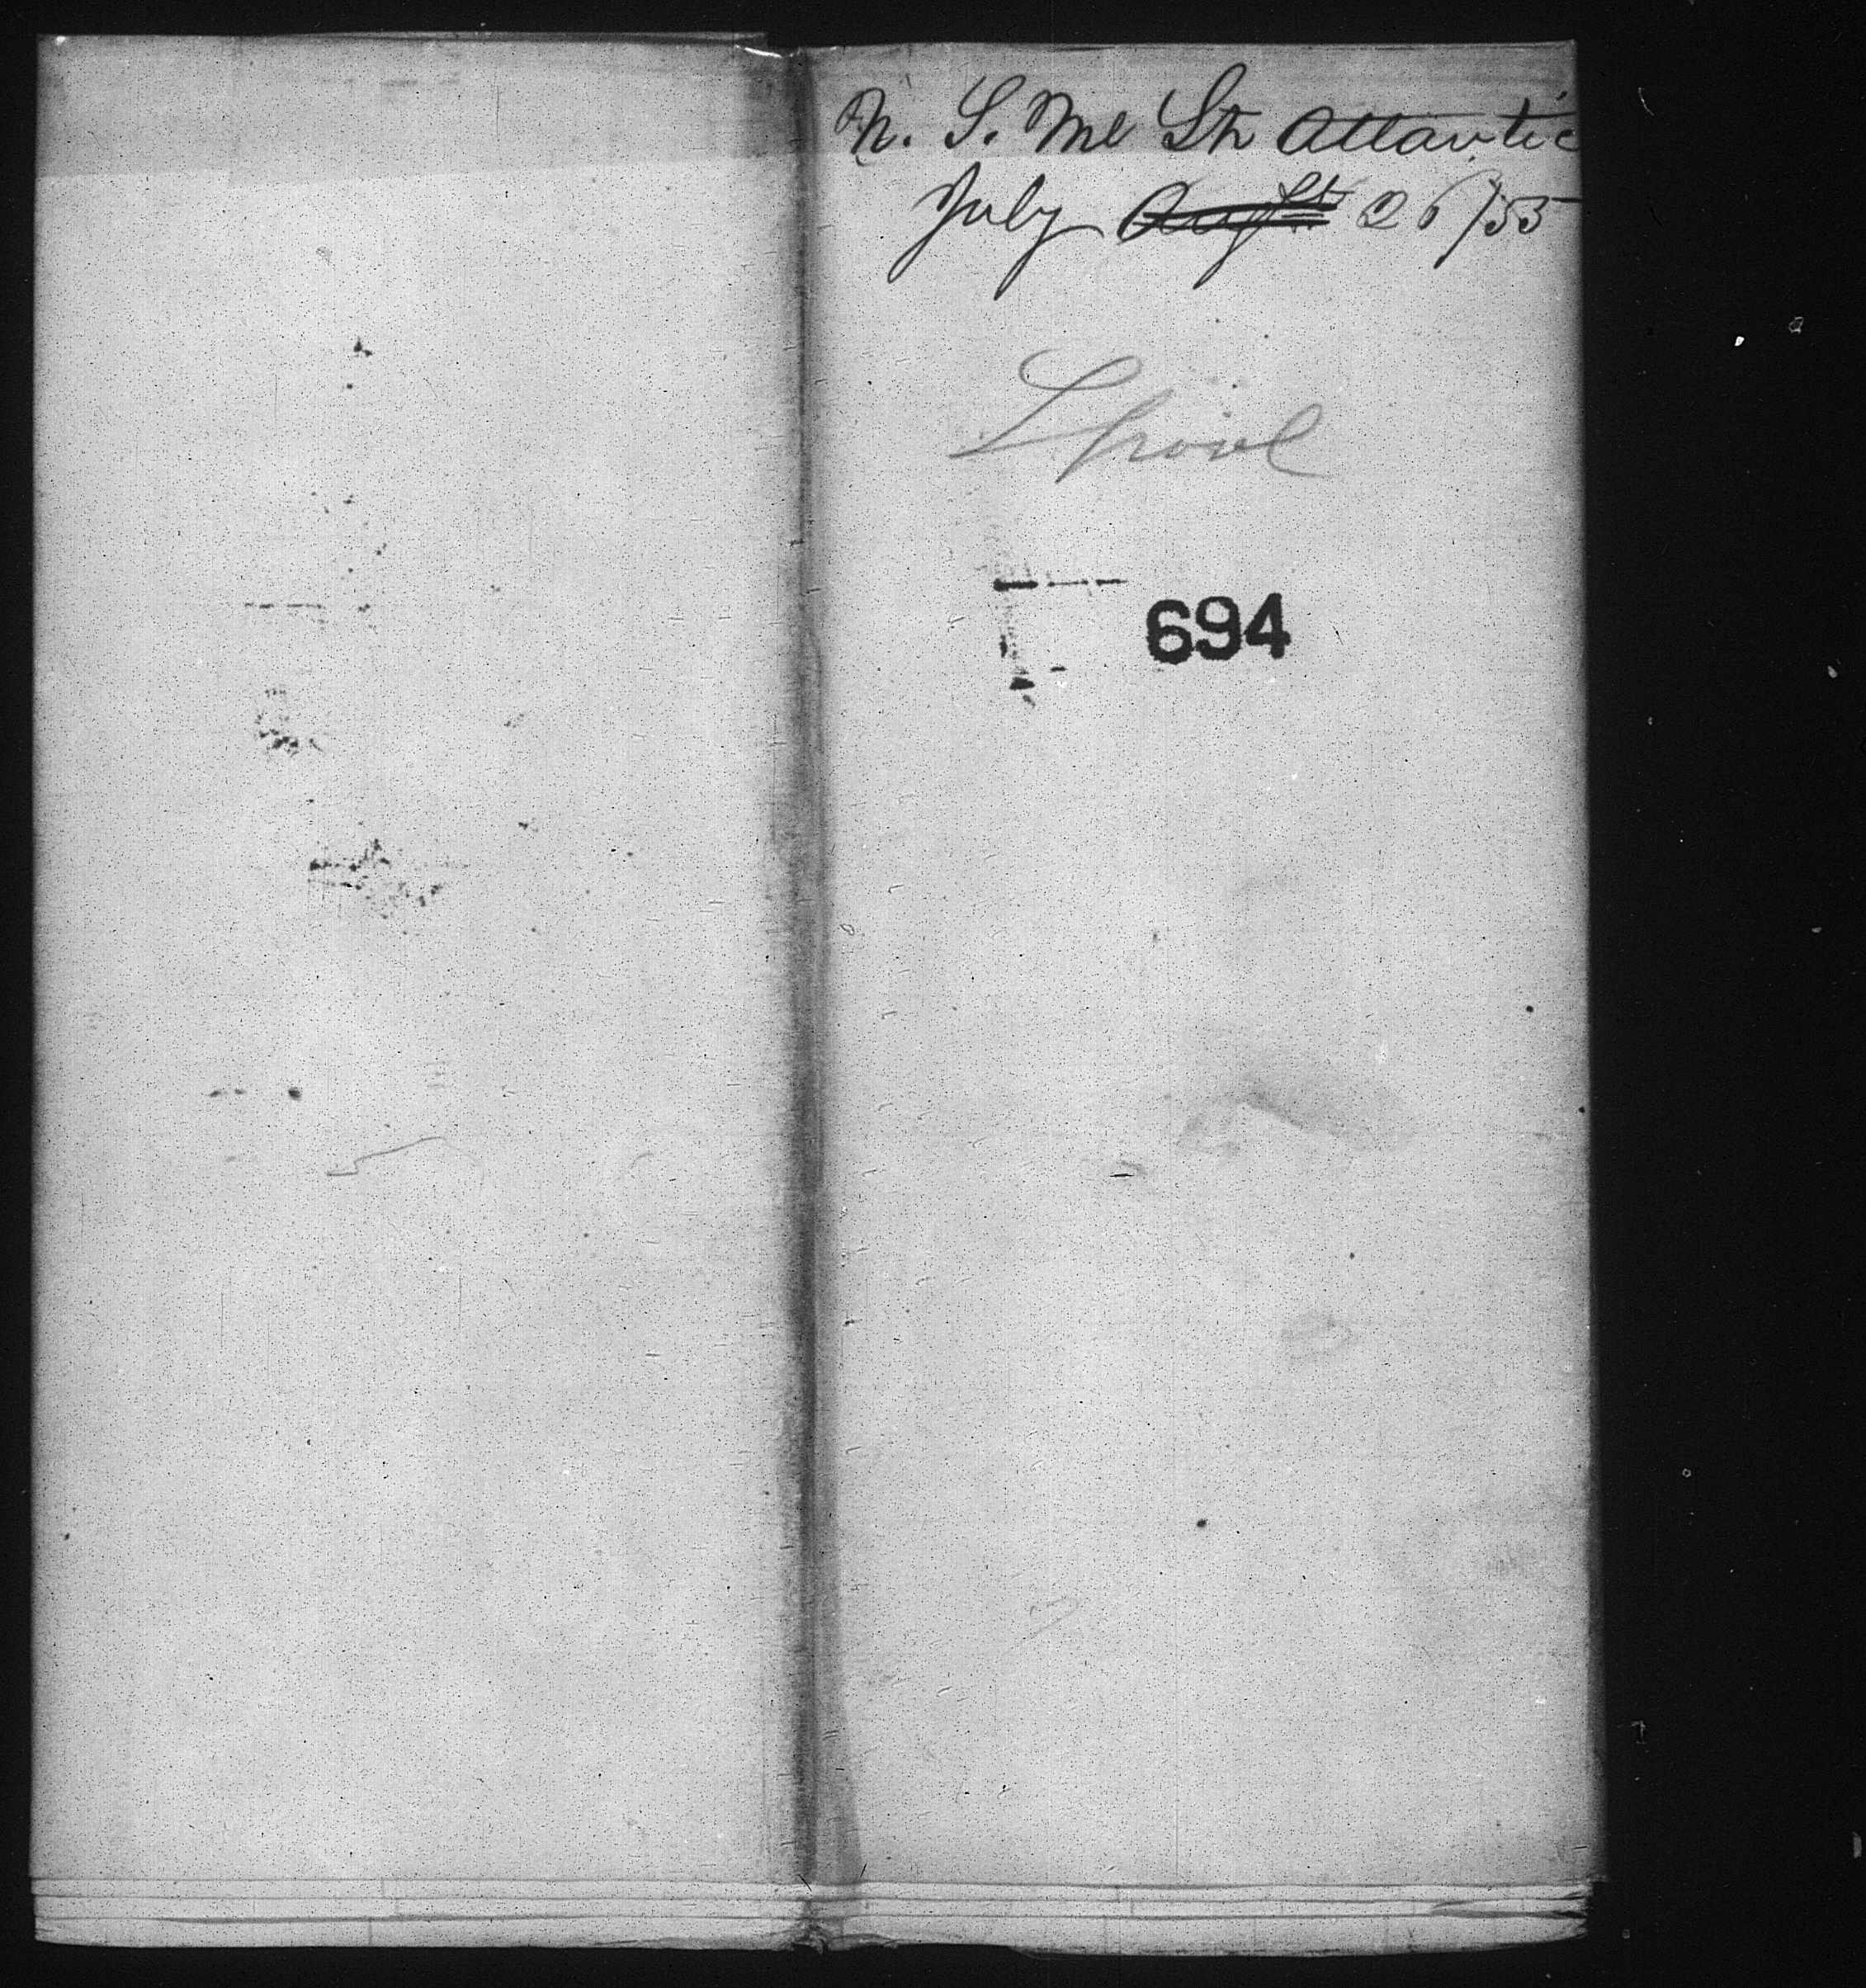 U. S. Ml Str Atlantic
July Augst 26/55
Lpool
694